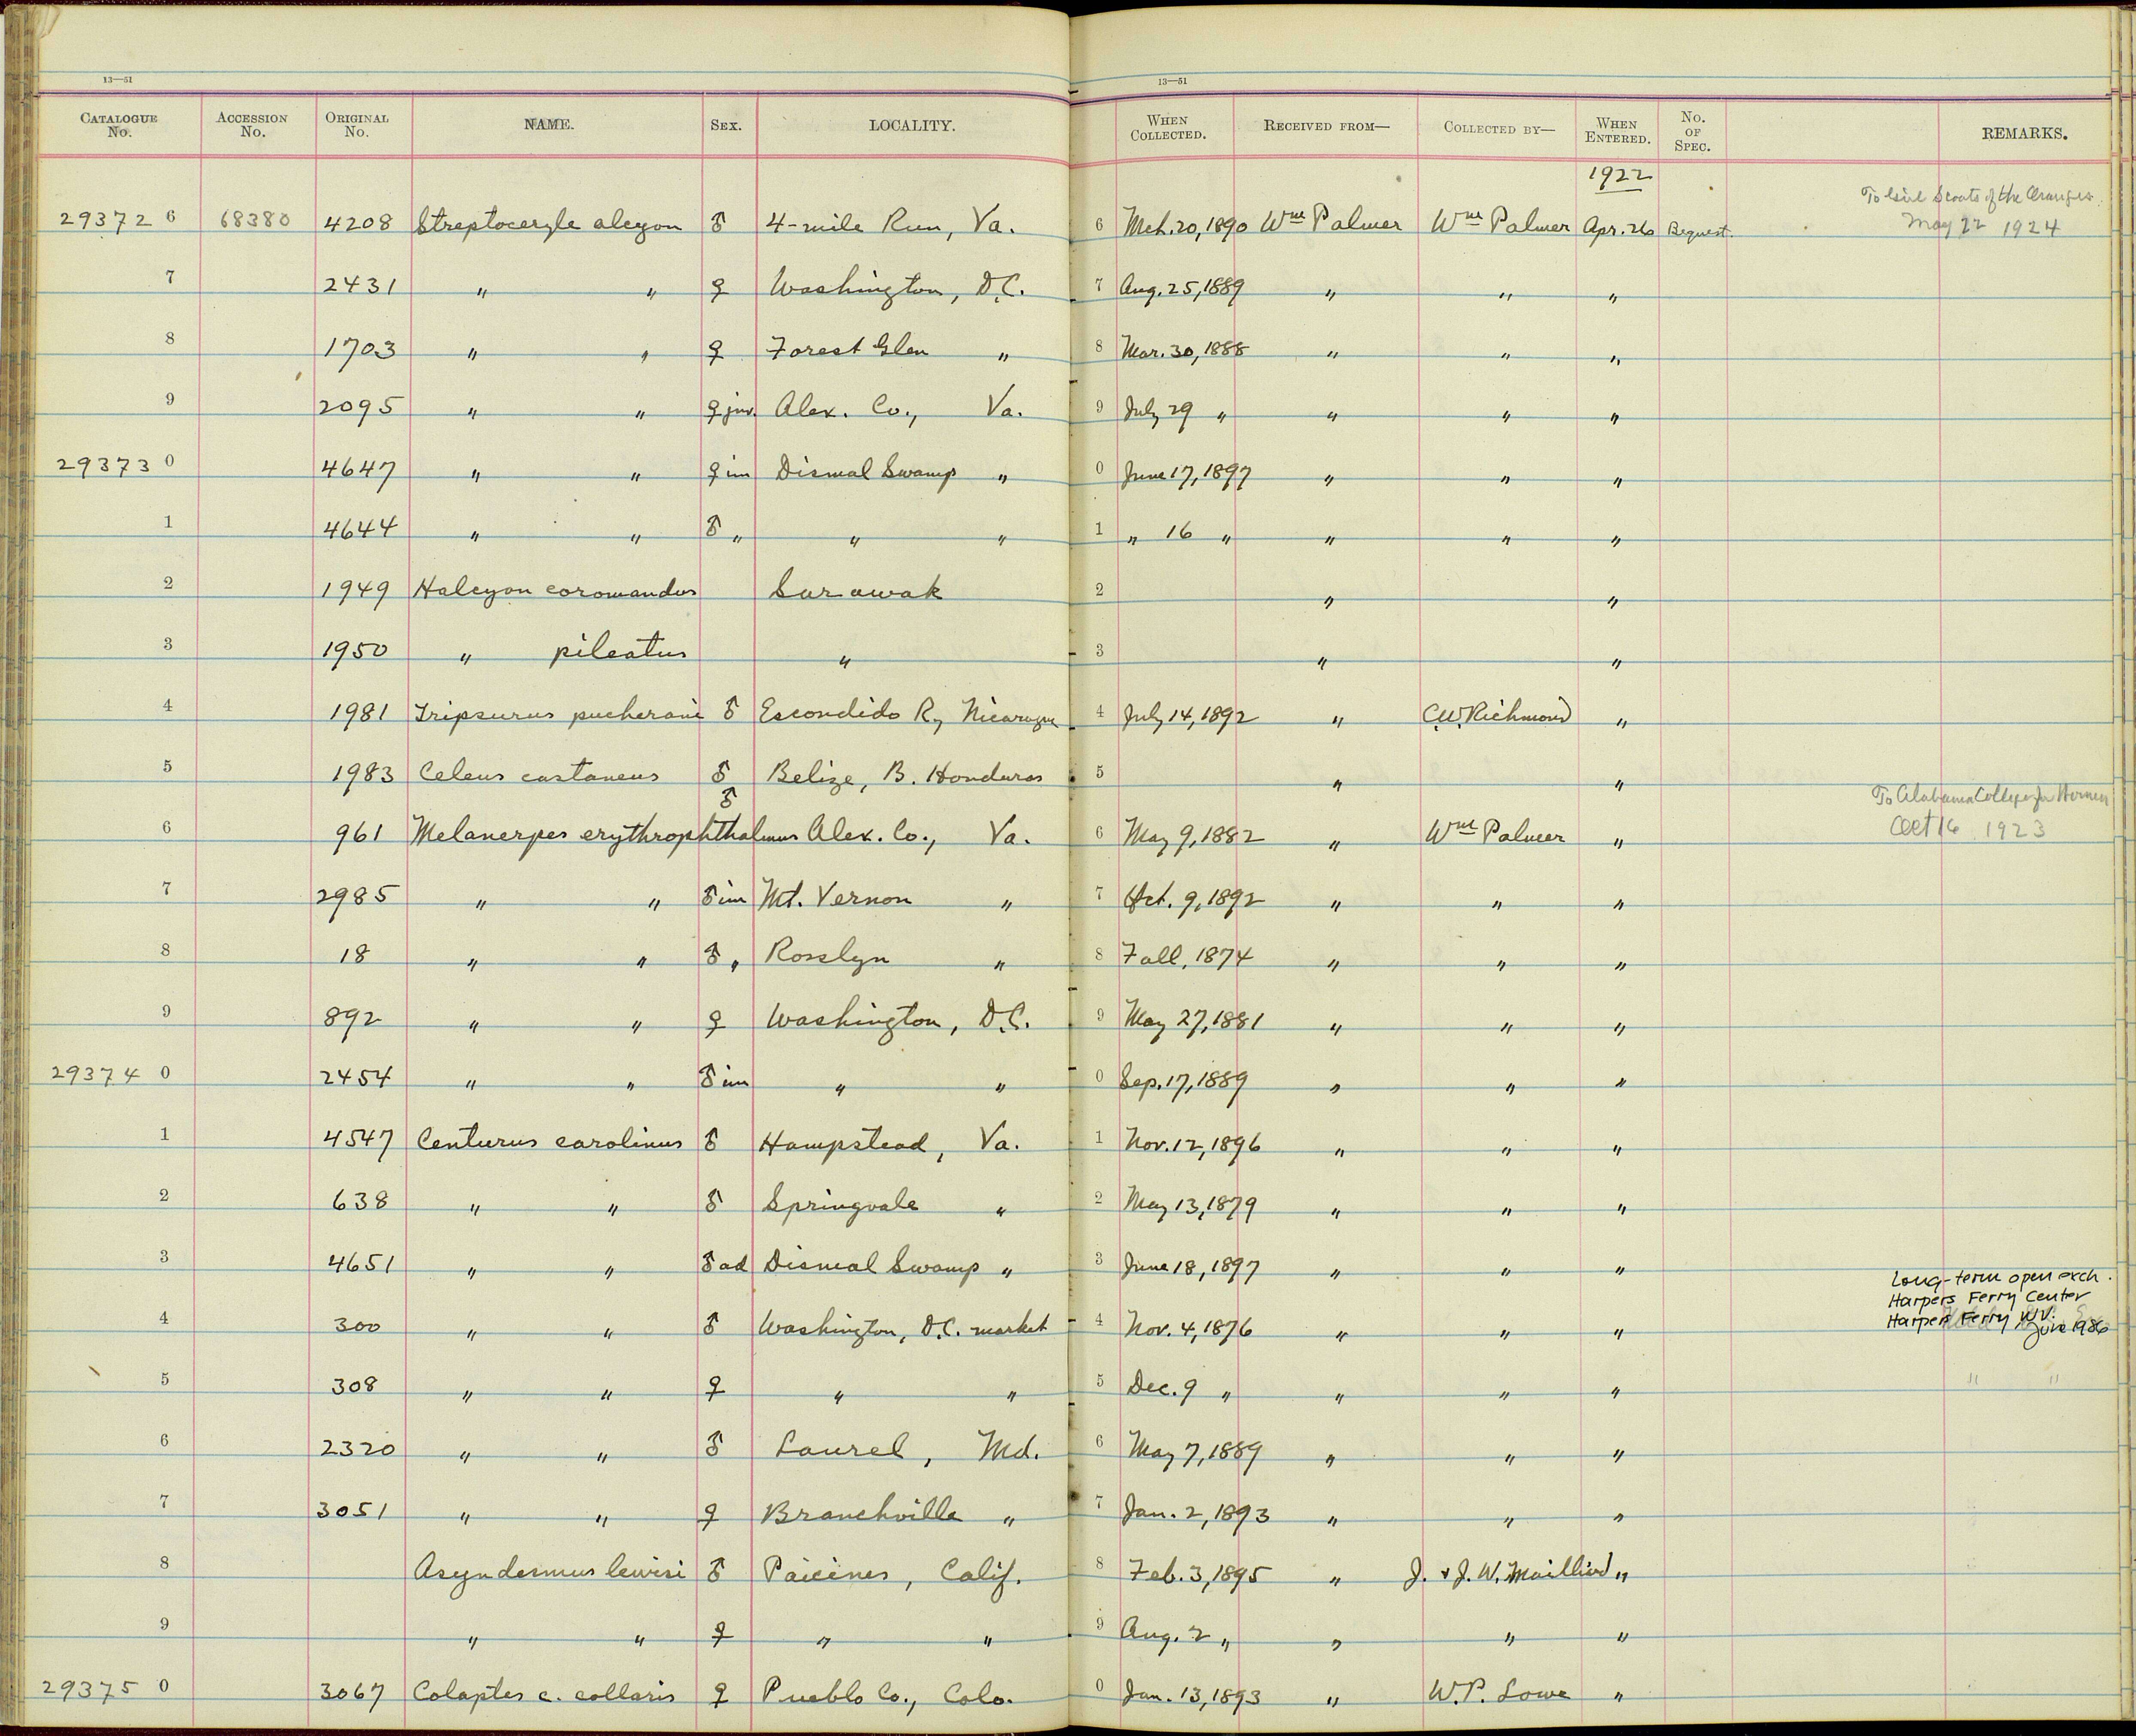 13—51 13—51
CATALOGUE No. ACCESSION No. ORIGINAL No. NAME. SEX. LOCALITY. WHEN COLLECTED. RECEIVED FROM— COLLECTED BY— WHEN ENTERED. No. OF SPEC. REMARKS.
1922
To Girl Scouts of the Oranges.
29372 6 68380 4208 Streptoceryle alcyon ♂ 4-mile Run, Va. 6 Mch. 20, 1890 Wm Palmer Wm Palmer Apr. 26 Bequest. May 22 1924
7 2431 " " ♀ Washington, D.C. 7 Aug. 25, 1889 " " "
8 1703 " " ♀ Forest Glen " 8 Mar. 30, 1888 " " "
9 2095 " " ♀ juv. Alex. Co., Va. 9 July 29 " " " "
29373 0 4647 " " ♀ im Dismal Swamp " 0 June 17, 1897 " " "
1 4644 " " ♂ " " " 1 " 16 " " " "
2 1949 Halcyon coromandus Sarawak 2 " "
3 1950 " pileatus " 3 " "
4 1981 Tripsurus pucherani ♂ Escondido R, Nicaragua 4 July 14, 1892 " C.W. Richmond "
5 1983 Celeus castaneus ♂ Belize, B. Honduras 5 " "
To Alabama College for Women
6 961 Melanerpes erythrophthalmus ♂ Alex. Co., Va. 6 May 9, 1882 " Wm Palmer " Oct 16 1923
7 2985 " " ♂ im Mt. Vernon " 7 Oct. 9, 1892 " " "
8 18 " " ♂ " Rosslyn " 8 Fall, 1874 " " "
9 892 " " ♀ Washington, D.C. 9 May 27, 1881 " " "
29374 0 2454 " " ♂ im " " 0 Sep. 17, 1889 " " "
1 4547 Centurus carolinus ♂ Hampstead, Va. 1 Nov. 12, 1896 " " "
2 638 " " ♂ Springvale " 2 May 13, 1879 " " "
3 4651 " " ♂ ad Dismal Swamp " 3 June 18, 1897 " " "
Long-term open exch.
Harpers Ferry Center
4 300 " " ♂ Washington, D.C. market 4 Nov. 4, 1876 " " " Harpers Ferry WV.
June 1986
5 308 " " ♀ " " 5 Dec. 9 " " " " " "
6 2320 " " ♂ Laurel, Md. 6 May 7, 1889 " " "
7 3051 " " ♀ Branchville " 7 Jan. 2, 1893 " " "
8 Asyndesmus lewisi ♂ Paicines, Calif. 8 Feb. 3, 1895 " J. & J. W. Mailliard "
9 " " ♀ " " 9 Aug. 2 " " " "
29375 0 3067 Colaptes c. collaris ♀ Pueblo Co., Colo. 0 Jan. 13, 1893 " W.P. Lowe "